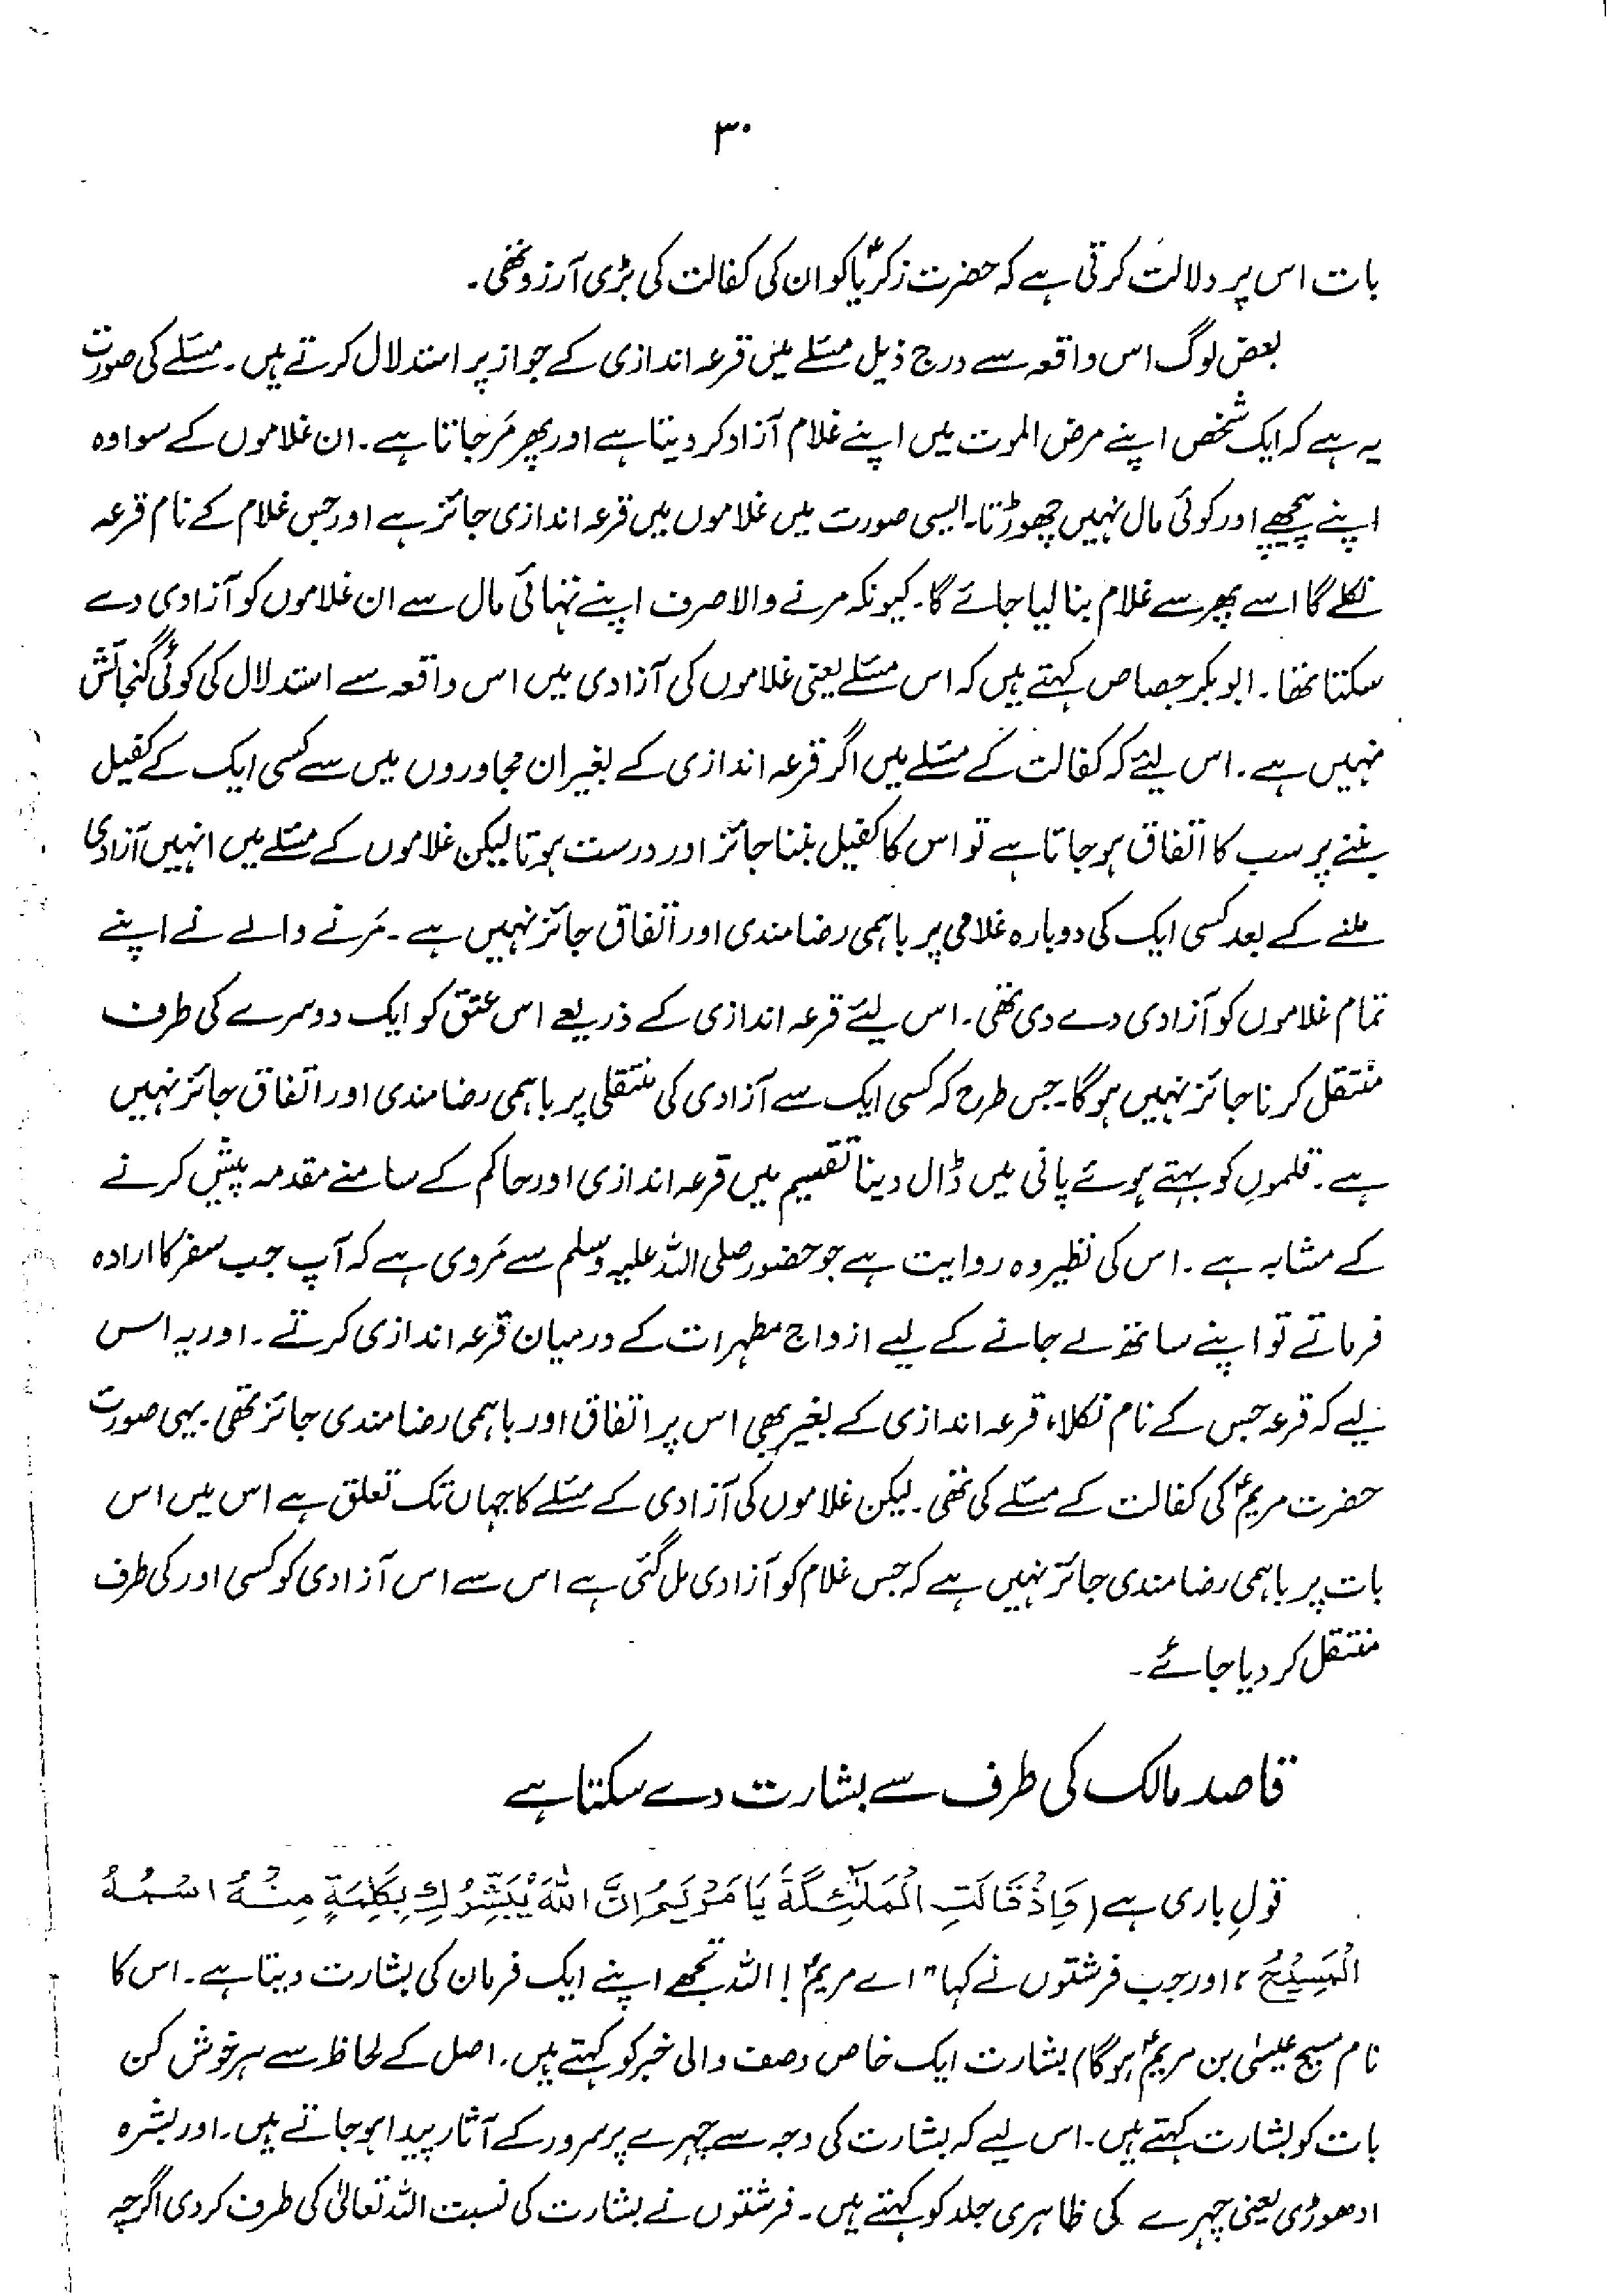 ۳۰
بات اس پر دلالت کرتی ہے کہ حضرت زکریاؑ کو ان کی کفالت کی بڑی آرزو تھی۔
بعض لوگ اس واقعہ سے درج ذیل مسئلے میں قرعہ اندازی کے جواز پر استدلال کرتے ہیں۔ مسئلے کی صورت
یہ ہے کہ ایک شخص اپنے مرض الموت میں اپنے غلام آزاد کر دیتا ہے اور پھر مَر جاتا ہے۔ ان غلاموں کے سوا وہ
اپنے پیچھے اور کوئی مال نہیں چھوڑتا۔ ایسی صورت میں غلاموں میں قرعہ اندازی جائز ہے اور جس غلام کے نام قرعہ
نکلے گا اسے پھر سے غلام بنا لیا جائے گا۔ کیونکہ مرنے والا صرف اپنے تہائی مال سے ان غلاموں کو آزادی دے
سکتا تھا۔ ابوبکر جصاص کہتے ہیں کہ اس مسئلے یعنی غلاموں کی آزادی میں اس واقعہ سے استدلال کی کوئی گنجائش
نہیں ہے۔ اس لئے کہ کفالت کے مسئلے میں اگر قرعہ اندازی کے بغیر ان مجاوروں میں سے کسی ایک کے کفیل
بننے پر سب کا اتفاق ہو جاتا ہے تو اس کا کفیل بننا جائز اور درست ہوتا لیکن غلاموں کے مسئلے میں انہیں آزادی
ملنے کے بعد کسی ایک کی دوبارہ غلامی پر باہمی رضامندی اور اتفاق جائز نہیں ہے۔ مَرنے والے نے اپنے
تمام غلاموں کو آزادی دے دی تھی۔ اس لئے قرعہ اندازی کے ذریعے اس عتق کو ایک دوسرے کی طرف
منتقل کرنا جائز نہیں ہوگا۔ جس طرح کہ کسی ایک سے آزادی کی منتقلی پر باہمی رضامندی اور اتفاق جائز نہیں
ہے۔ قلموں کو بہتے ہوئے پانی میں ڈال دینا تقسیم میں قرعہ اندازی اور حاکم کے سامنے مقدمہ پیش کرنے
کے مشابہ ہے۔ اس کی نظیر وہ روایت ہے جو حضور صلی اللہ علیہ وسلم سے مَروی ہے کہ آپ جب سفر کا ارادہ
فرماتے تو اپنے ساتھ لے جانے کے لیے ازواج مطہرات کے درمیان قرعہ اندازی کرتے۔ اور یہ اس
لیے کہ قرعہ جس کے نام نکلا، قرعہ اندازی کے بغیر بھی اس پر اتفاق اور باہمی رضامندی جائز تھی۔ یہی صورت
حضرت مریمؑ کی کفالت کے مسئلے کی تھی۔ لیکن غلاموں کی آزادی کے مسئلے کا جہاں تک تعلق ہے اس میں اس
بات پر باہمی رضامندی جائز نہیں ہے کہ جس غلام کو آزادی مل گئی ہے اس سے اس آزادی کو کسی اور کی طرف
منتقل کر دیا جائے۔
قاصد مالک کی طرف سے بشارت دے سکتا ہے
قولِ باری ہے (وَاِذْ قَالَتِ الْمَلٰٓئِكَةُ يَا مَرْيَمُ اِنَّ اللّٰهَ يُبَشِّرُكِ بِكَلِمَةٍ مِنْهُ اسْمُهُ
الْمَسِيْحُ، اور جب فرشتوں نے کہا "اے مریمؑ! اللہ تجھے اپنے ایک فرمان کی بشارت دیتا ہے۔ اس کا
نام مسیح عیسیٰ بن مریمؑ ہوگا) بشارت ایک خاص وصف والی خبر کو کہتے ہیں۔ اصل کے لحاظ سے ہر خوش کن
بات کو بشارت کہتے ہیں۔ اس لیے کہ بشارت کی وجہ سے چہرے پر سرور کے آثار پیدا ہو جاتے ہیں۔ اور بشرہ
ادھوڑی یعنی چہرے کی ظاہری جلد کو کہتے ہیں۔ فرشتوں نے بشارت کی نسبت اللہ تعالیٰ کی طرف کر دی اگرچہ